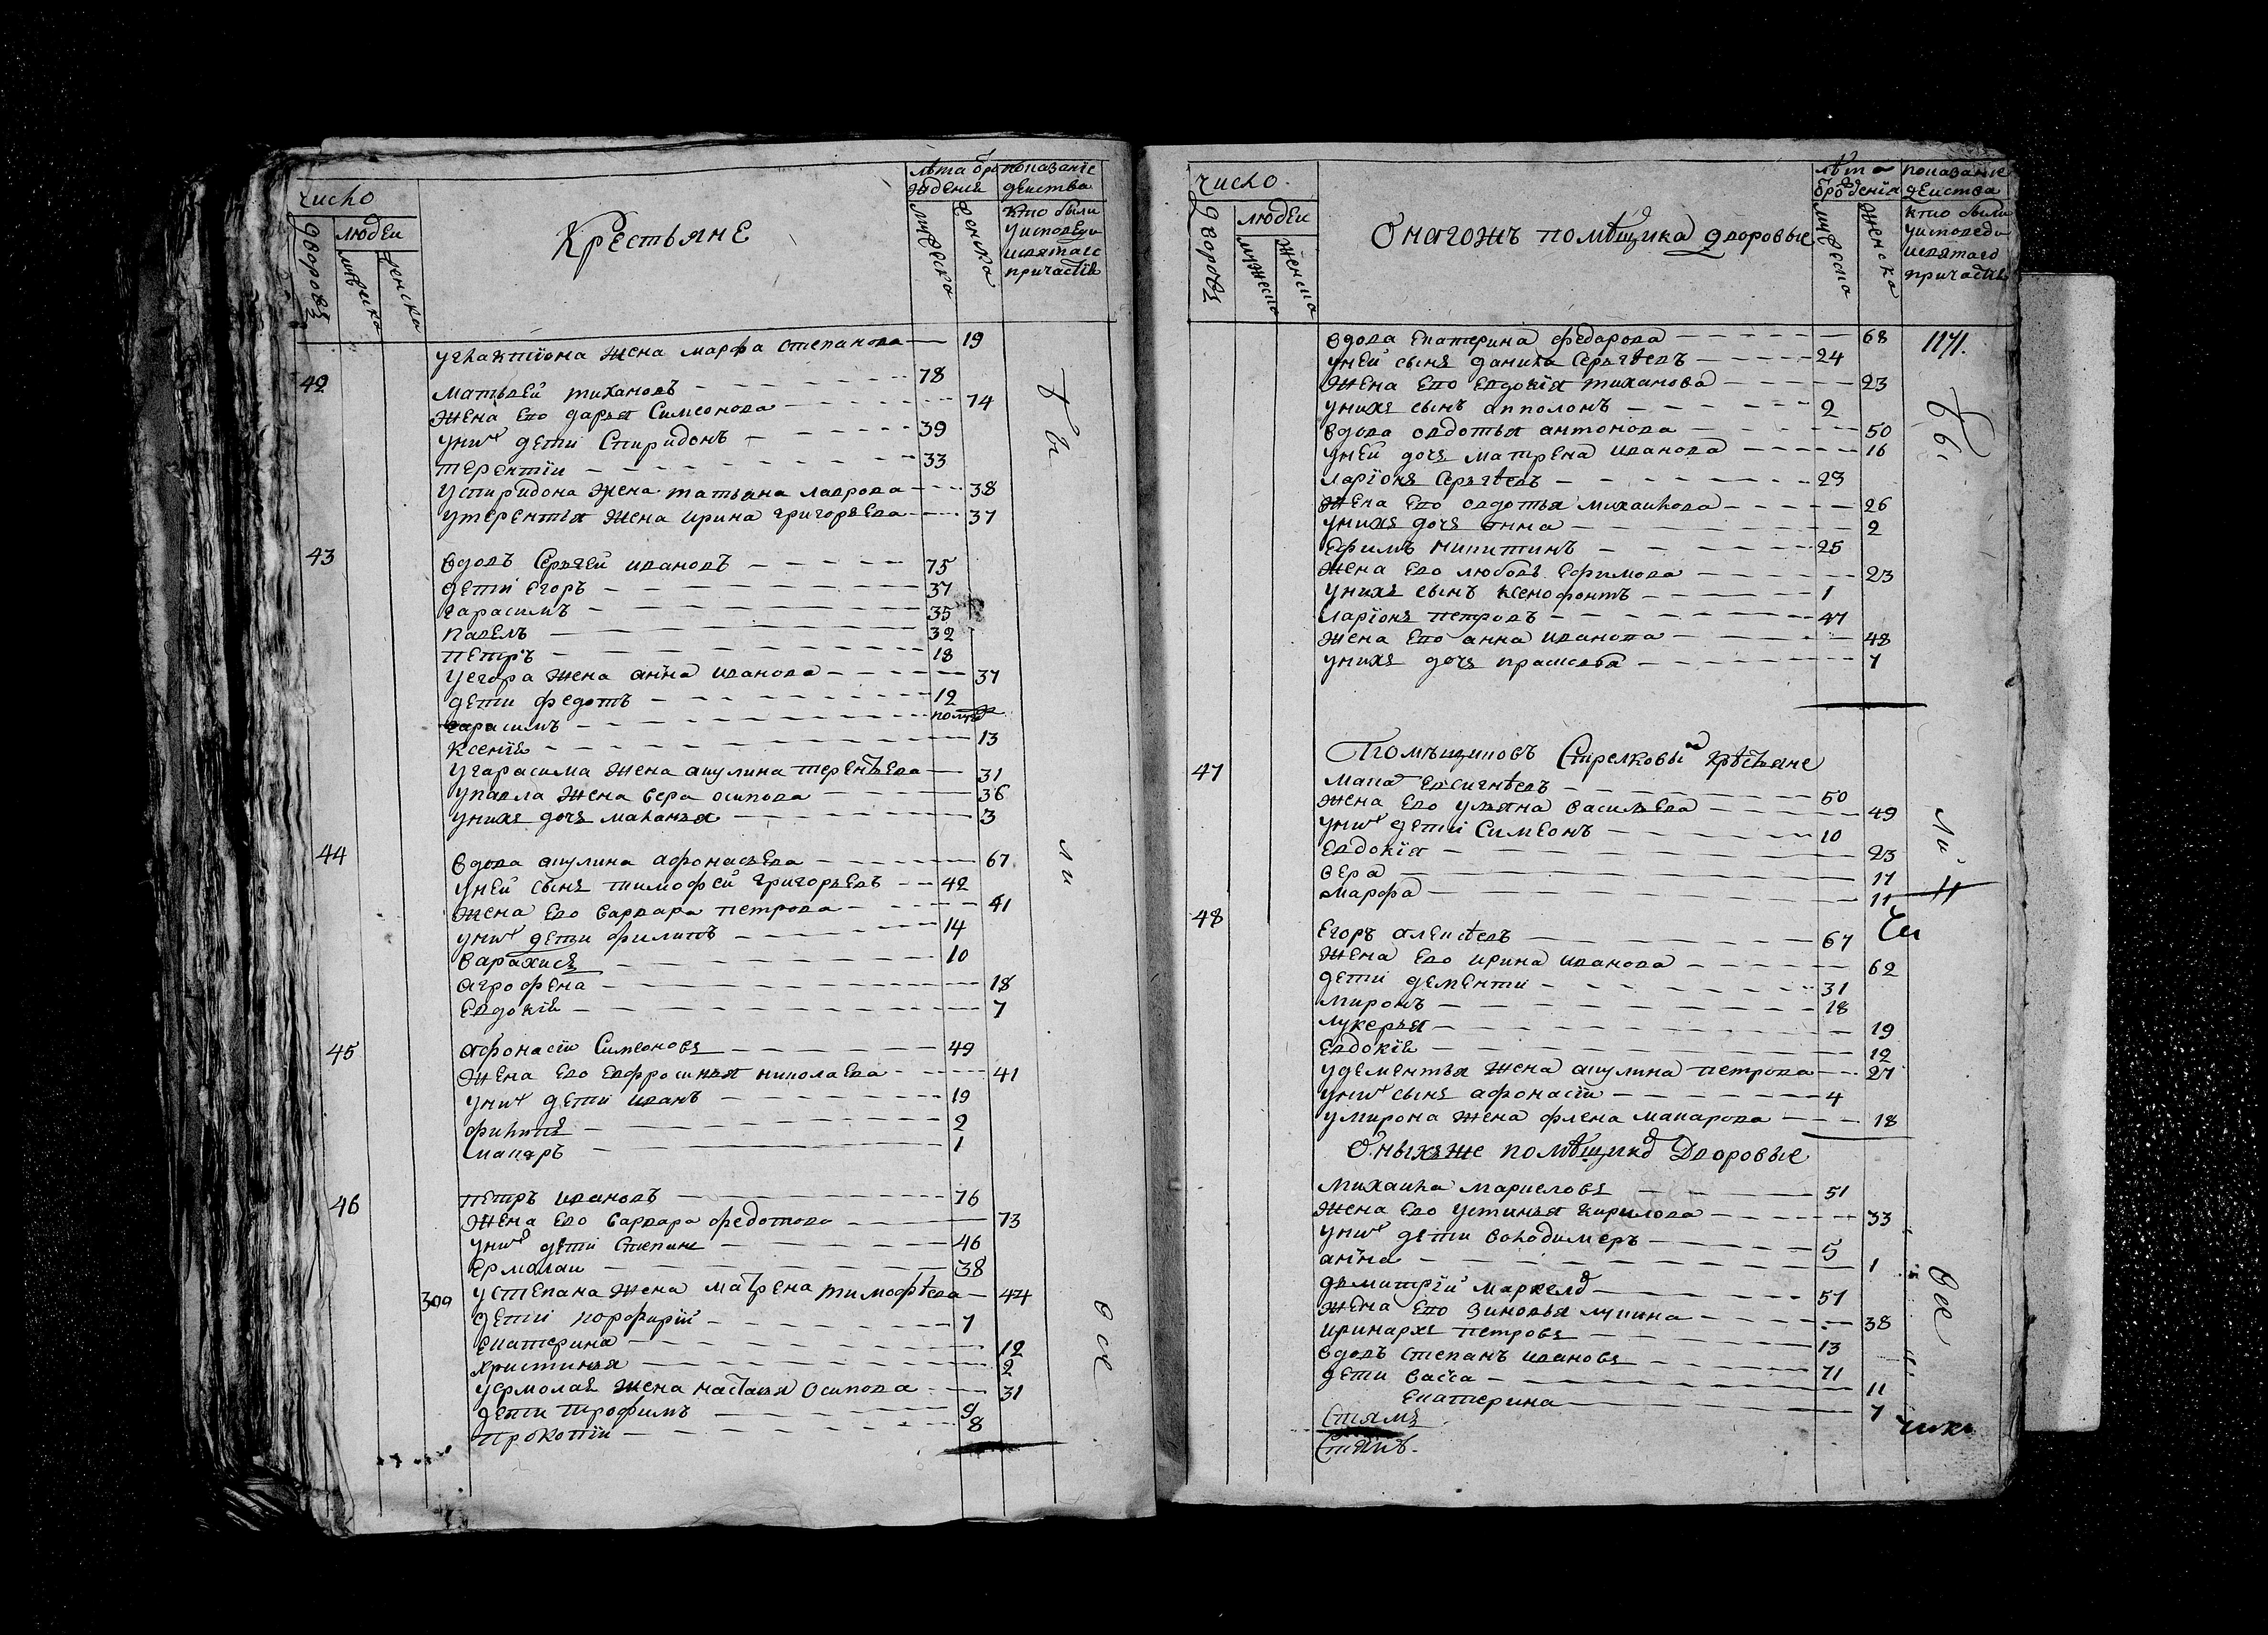 число
дворовъ
людеи
мужеска
женска
Крестьяне
лѣта ѿ рождения
мужеска
женска
показание действа
кто были
у исповеди
и святаго
причастїя
у галактиона жена марфа степанова 19
42 матвей тихановъ 78
жена ево дарья Симеонова 74
у них дети Спиридонъ 39
терентїи 33
у спиридона жена татьяна лаврова 38
у терентья жена ирина григорьева 37
43 вдовъ Сергей ивановъ 75
дети Егоръ 37
гарасимъ 35
павелъ 32
петръ 18
у егора жена анна иванова 37
дети федотъ 12
гарасимъ полго
ксенїя 13
у гарасима жена акулина терентьева 31
у павла жена вера осипова 36
у нихъ дочь маланья 3
44 вдова акулина афонасьева 67
у ней сынъ тимофей григорьевъ 42
жена ево варвара петрова 41
у них дети филипъ 14
варахисъ 10
агрофена 18
Евдокїя 7
45 афонасїи Симеоновъ 49
жена ево евфросинья николаева 41
у них дети иванъ 19
филипъ 2
макаръ 1
46 петръ ивановъ 76
жена ево варвара федотова 73
у них дети Степанъ 46
Ермолаи 38
300 у степана жена матрена тимофѣева 44
дети порфирїй 7
екатерина 12
христинья 2
у ермолая жена настасья осипова 31
дети трофимъ 9
прокопїи 8
бы
ли
все
число
дворовъ
людеи
мужеска
женска
Онагожъ помѣщика дворовые
лѣта ѿ рождения
мужеска
женска
показание
действа
кто были
у исповеди
и святаго
причастїя
вдова екатерина федарова 68
у ней сынъ данила Сергѣевъ 24
жена ево евдокїя тиханова 23
у нихъ сынъ апполонъ 2
вдова овдотья антонова 50
у ней дочь матрена иванова 16
ларїонъ Сергѣевъ 23
жена ево овдотья михаилова 26
у нихъ дочь анна 2
Ефимъ никитинъ 25
жена ево любовь Ефимова 23
у нихъ сынъ ксенофонтъ 1
ларїонъ петровъ 47
жена ево анна иванова 48
у нихъ дочь прасковья 7
Помѣщиковъ Стрелковых крѣстьяне
47 Евсигнѣевъ 50
жена ево ульяна васильева 49
у них дети Симеонъ 10
Евдокїя 23
вера 17
марфа 11
48 Егоръ алексѣевъ 67
жена ево ирина иванова 62
дети дементи 31
миронъ 18
лукерья 19
Евдокїя 12
у дементья жена акулина петрова 27
у них сынъ афонасїи 4
у мирона жена флена макарова 18
Оныхъже помѣщикѡв Дворовые
михаила маркеловъ 51
жена ево устинья кирилова 33
у них дети володимеръ 5
анна 1
дьмитрїй маркелов 57
жена ево зиновья лукина 38
иринархъ петровъ 13
вдовъ степанъ ивановъ 71
дети васса 11
екатерина 7
бы
ли
все